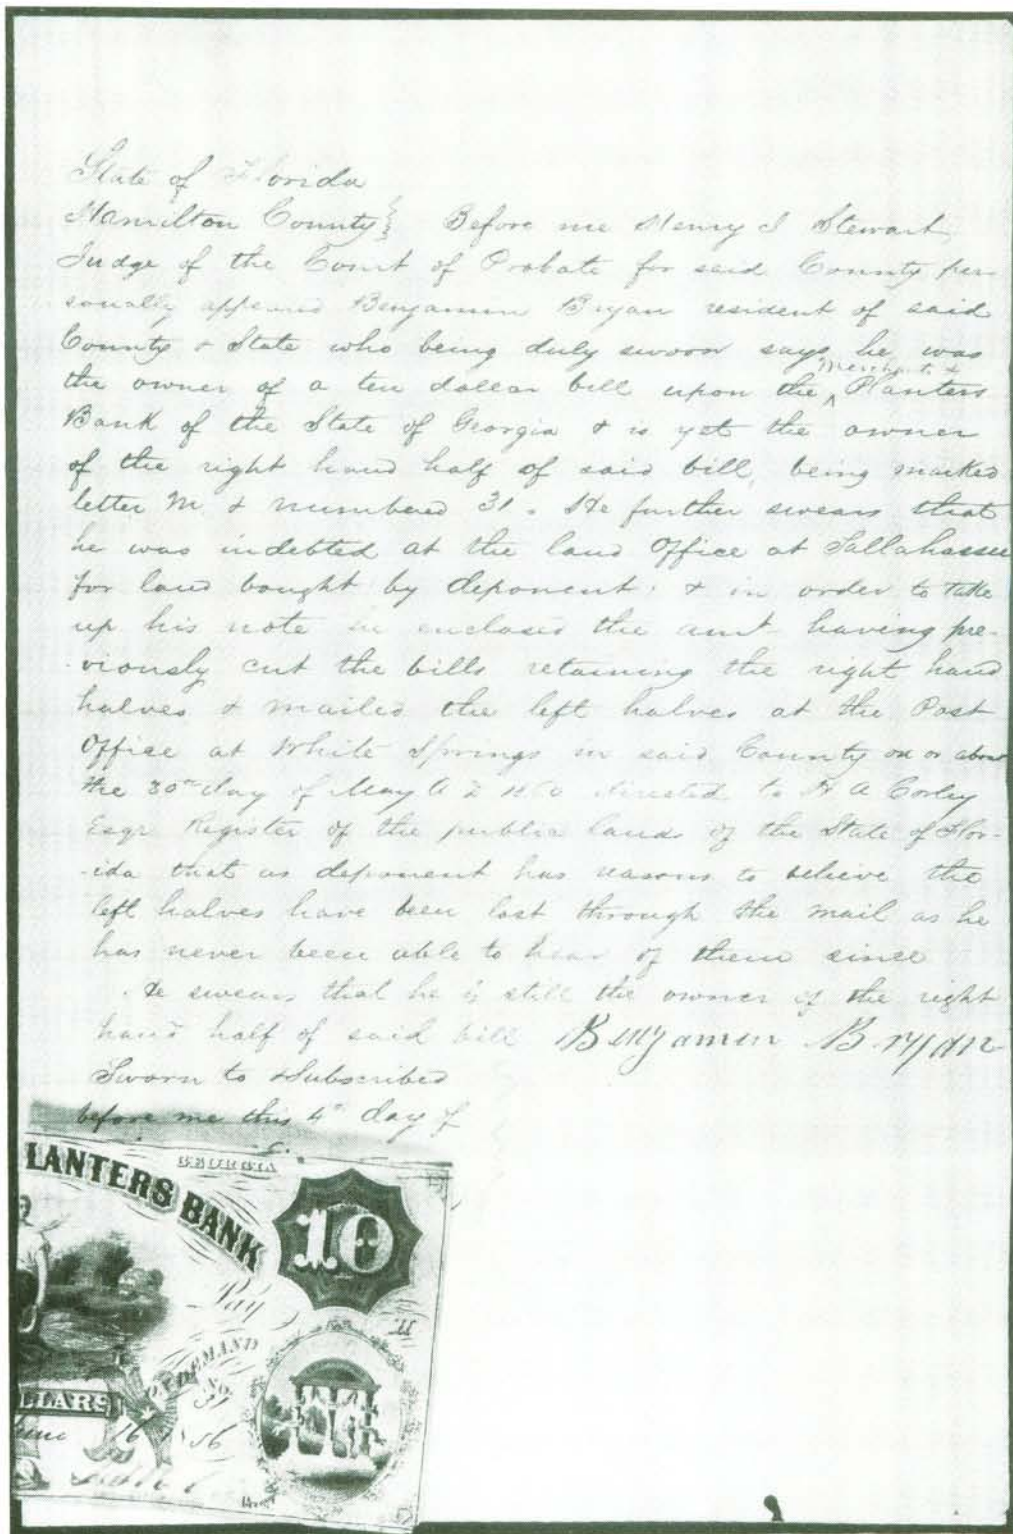 State of Florida
Hamilton County } Before me Henry J Stewart,
Judge of the Court of Probate for said County per-
sonally appeared Benjamin Bryan resident of said
County & State who being duly sworn says he was
the owner of a ten dollar bill upon the ^ Merchants & Planters
Bank of the State of Georgia & is yet the owner
of the right hand half of said bill, being marked
letter M & numbered 31. He further swears that
he was indebted at the land Office at Tallahassee
for land bought by deponent & in order to take
up his note he enclosed the amt having pre-
viously cut the bills retaining the right hand
halves & mailed the left halves at the Post
Office at White Springs in said County on or about
the 30th day of May A D 1860 directed to H A Corley
Esqr Register of the public lands of the State of Flor-
-ida that as deponent has reasons to believe the
left halves have been lost through the mail as he
has never been able to hear of them since
He swears that he is still the owner of the right
hand half of said bill Benjamin Bryan
Sworn to & Subscribed
before me this 4th day of
GEORGIA
LANTERS BANK
10
Pay
M
ON DEMAND
No
31
LLARS
June 16 1856